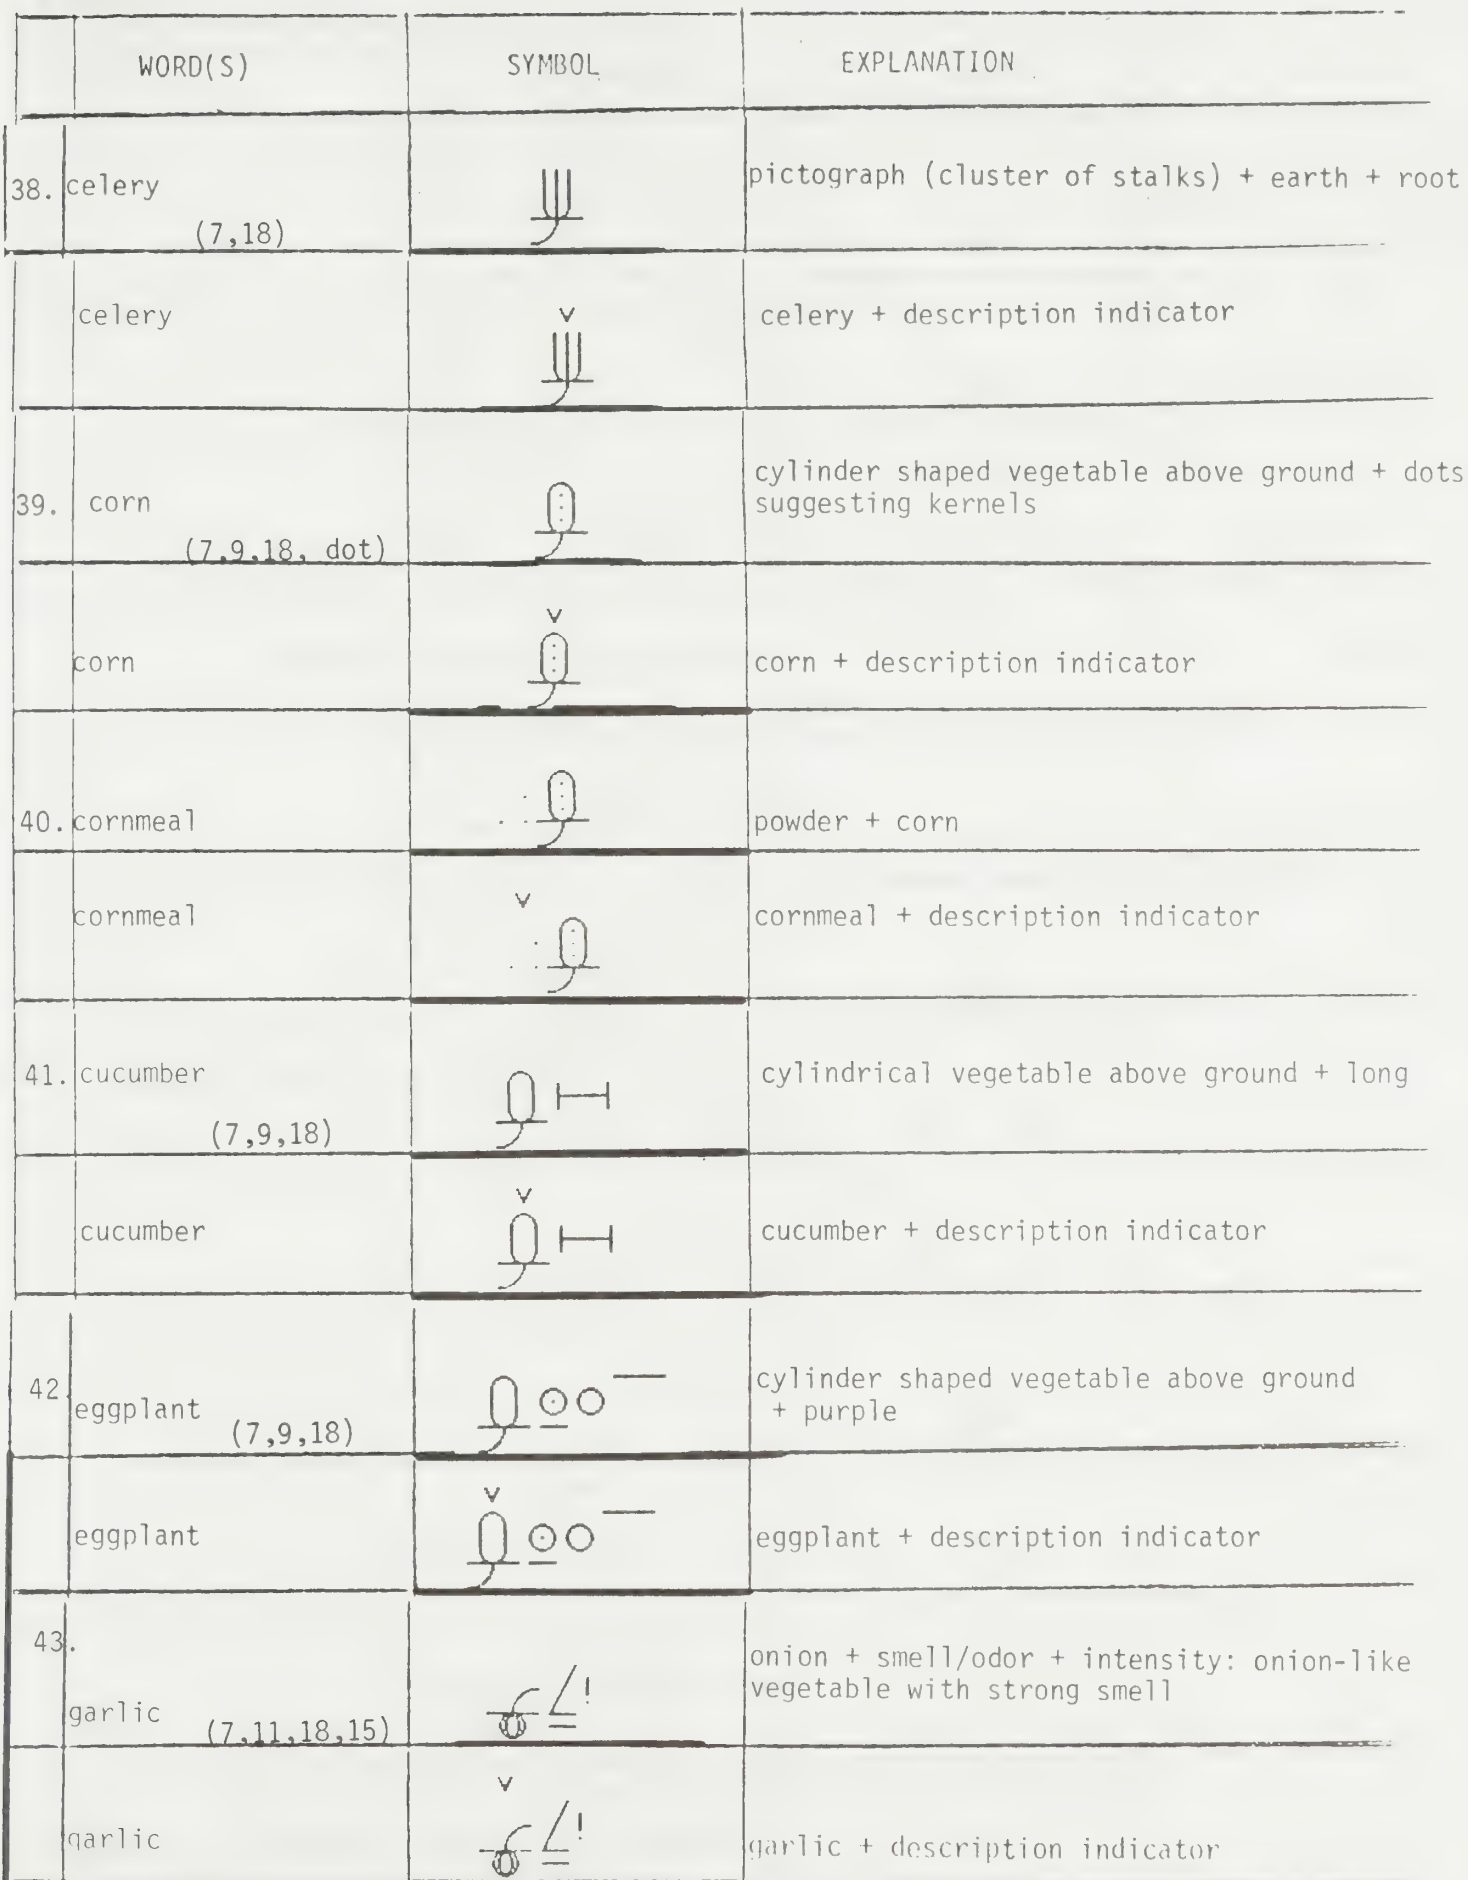 WORD(S) SYMBOL EXPLANATION
38. celery pictograph (cluster of stalks) + earth + root
(7,18)
celery celery + description indicator
cylinder shaped vegetable above ground + dots
39. corn suggesting kernels
(7,9,18, dot)
corn corn + description indicator
40. cornmeal powder + corn
cornmeal cornmeal + description indicator
41. cucumber cylindrical vegetable above ground + long
(7,9,18)
cucumber cucumber + description indicator
42 cylinder shaped vegetable above ground
eggplant + purple
(7,9,18)
eggplant eggplant + description indicator
43.
onion + smell/odor + intensity: onion-like
vegetable with strong smell
garlic (7,11,18,15)
garlic garlic + description indicator